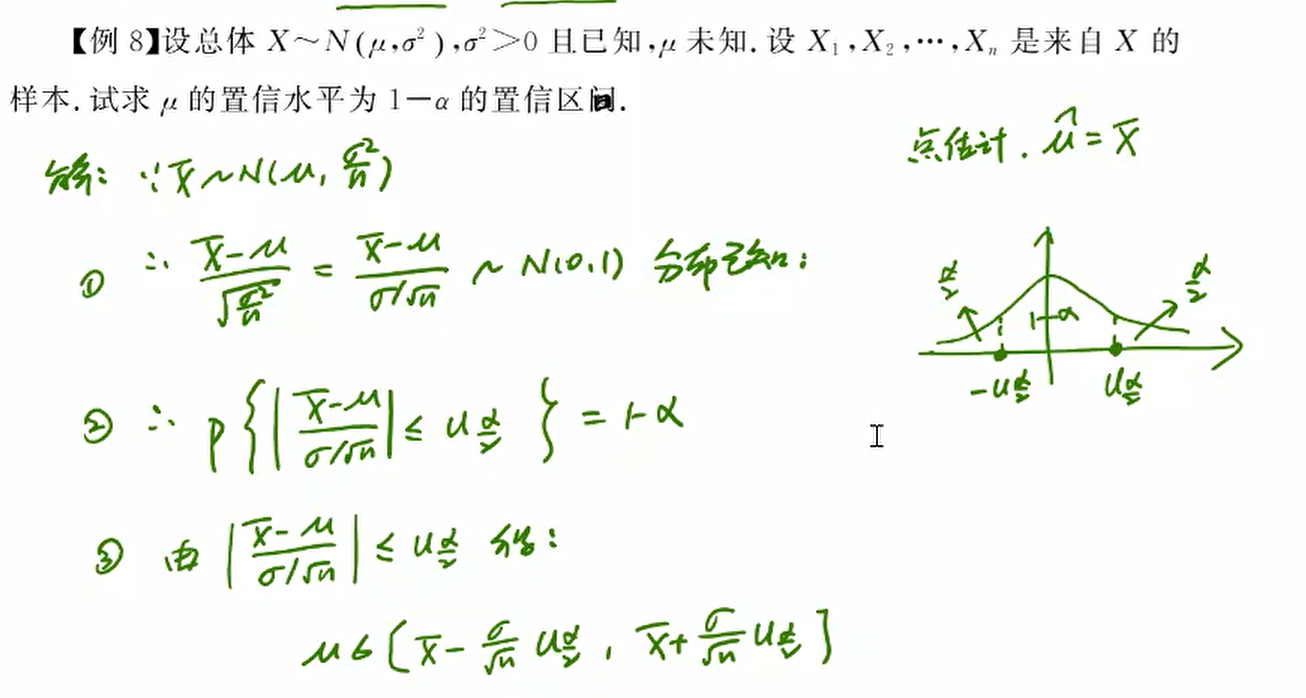 【例 8】设总体 X~N(μ,σ²),σ²>0 且已知,μ 未知.设 X₁,X₂,…,Xₙ 是来自 X 的
样本.试求 μ 的置信水平为 1-α 的置信区间.
点估计. μ̂ = X̄
解: ∵ X̄ ~ N(μ, σ²/n)
① ∴ (X̄-μ)/√(σ²/n) = (X̄-μ)/(σ/√n) ~ N(0,1) 分布已知:
α/2 1-α α/2
-u_{α/2} u_{α/2}
② ∴ P{|(X̄-μ)/(σ/√n)| ≤ u_{α/2}} = 1-α
③ 由 |(X̄-μ)/(σ/√n)| ≤ u_{α/2} 解得:
μ∈[X̄ - σ/√n u_{α/2}, X̄ + σ/√n u_{α/2}]